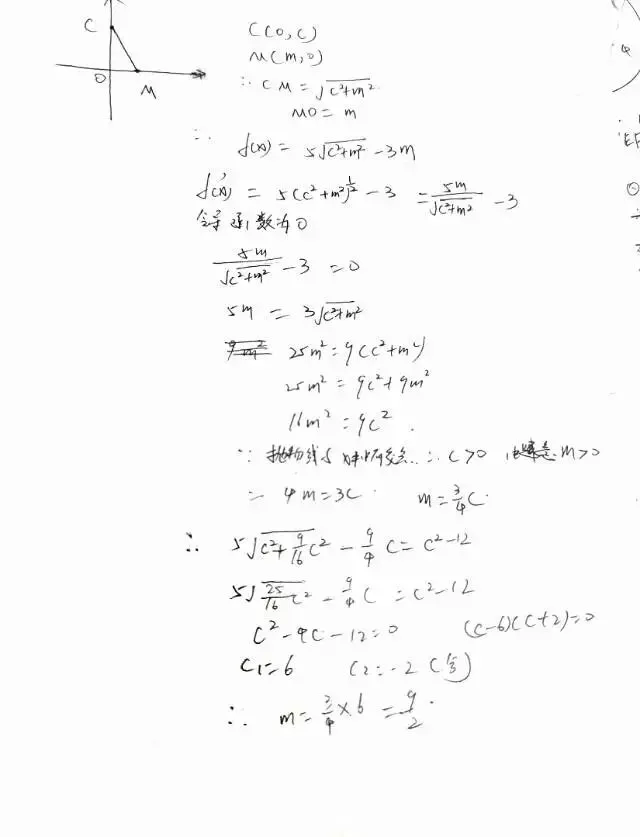 C
O
M
C(0,c)
M(m,0)
∴ CM = √(c²+m²)
MO = m
∴ f(x) = 5√(c²+m²) - 3m
f'(x) = 5(c²+m²)^½ - 3 = 5m/√(c²+m²) - 3
令导函数为0
5m/√(c²+m²) - 3 = 0
5m = 3√(c²+m²)
25m² = 9(c²+m²)
25m² = 9c²+9m²
16m² = 9c².
∵ 抛物线 ∴ C>0 m>0
= 4m=3C. m=¾C.
∴ 5√(c²+9/16c²) - 9/4 C = C²-12
5√(25/16c²) - 9/4 C = C²-12
C²-4C-12=0 (C-6)(C+2)=0
C1=6 C2=-2 (舍)
∴ m=¾×6 = 9/2.